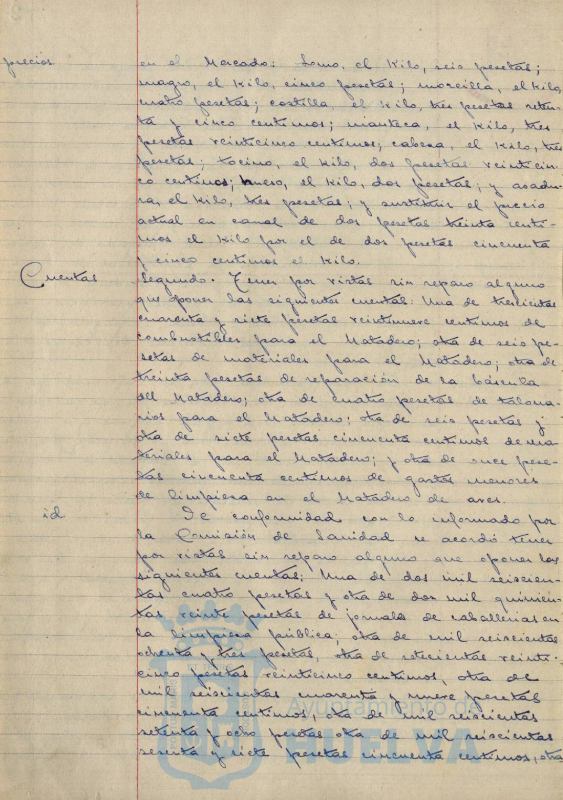 precios
en el Mercado: Lomo, el Kilo, seis pesetas;
magro, el Kilo, cinco pesetas; morcilla, el Kilo,
cuatro pesetas; costilla, el Kilo, tres pesetas seten-
ta y cinco centimos; manteca, el Kilo, tres
pesetas veinticinco centimos; cabeza, el Kilo, tres
pesetas; tocino, el kilo, dos pesetas veinticin-
co centimos; hueso, el Kilo, dos pesetas; y asadu-
ra, el kilo, tres pesetas; y sustituir el precio
actual en canal de dos pesetas treinta centi-
mos el Kilo por el de dos pesetas cincuenta
y cinco centimos el Kilo.
Cuentas
Segundo. Tener por vistas sin reparo alguno
que oponer las siguientes cuentas: Una de trescientas
cuarenta y siete pesetas veintinueve centimos de
combustibles para el Matadero; otra de seis pe-
setas de materiales para el Matadero; otra de
treinta pesetas de reparación de la báscula
del Matadero; otra de cuatro pesetas de talona-
rios para el Matadero; otra de seis pesetas y
otra de siete pesetas cincuenta centimos de ma-
teriales para el Matadero; y otra de once pese-
tas cincuenta centimos de gastos menores
de limpieza en el Matadero de aves.
id
De conformidad con lo informado por
la Comisión de Sanidad se acordó tener
por vistas sin reparo alguno que oponer las
siguientes cuentas: Una de dos mil seiscien-
tas cuatro pesetas y otra de dos mil quinien-
tas veinte pesetas de jornales de caballerias en
la limpieza pública; otra de mil seiscientas
ochenta y tres pesetas, otra de setecientas veinti-
cinco pesetas veinticinco centimos, otra de
mil seiscientas cuarenta y nueve pesetas
cincuenta centimos, otra de mil seiscientas
setenta y ocho pesetas otra de mil seiscientas
sesenta y siete pesetas cincuenta centimos, otra
Ayuntamiento de
HUELVA